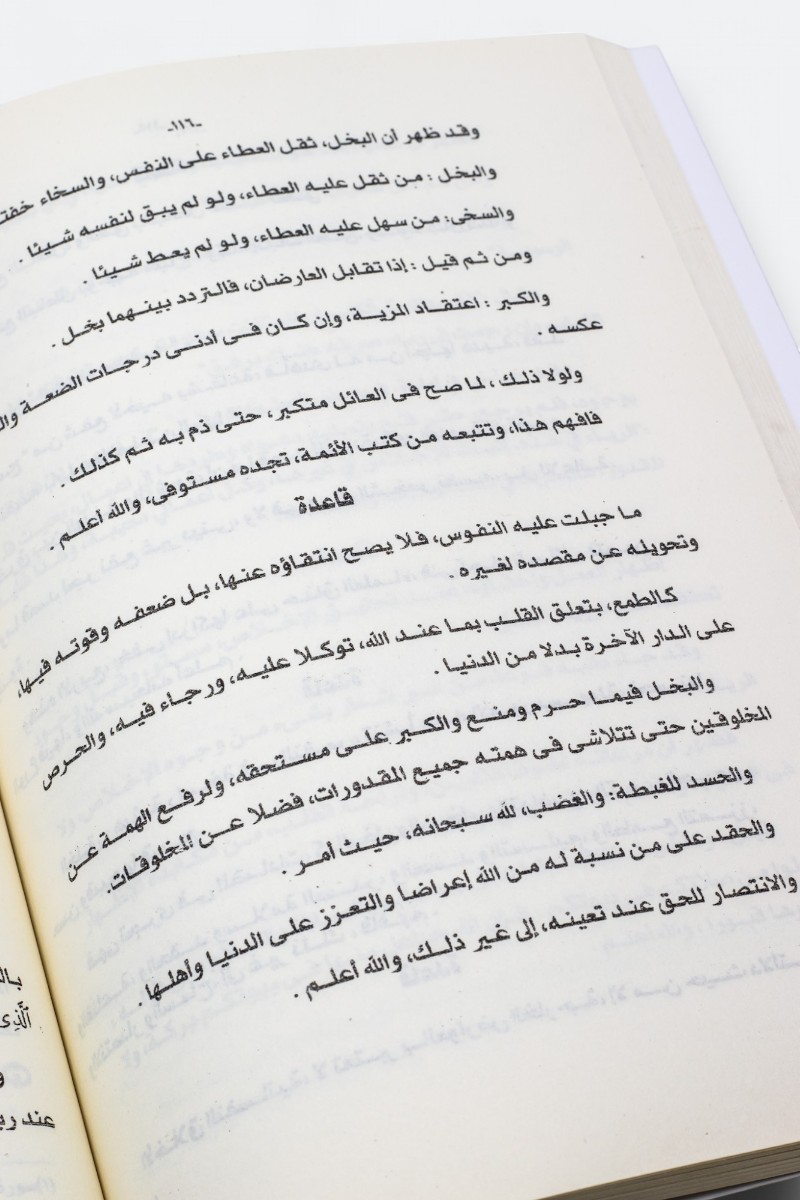 -١١٦-
وقد ظهر أن البخل، ثقل العطاء على النفس، والسخاء
والبخل : من ثقل عليه العطاء، ولو لم يبق لنفسه شيئا .
والسخى: من سهل عليه العطاء، ولو لم يعط شيئا .
ومن ثم قيل : إذا تقابل العارضان، فالتردد بينهما بخل .
والكبر : اعتقاد المزية، وإن كان فى أدنى درجات الضعة
عكسه .
ولولا ذلك ، لما صح فى العائل متكبر، حتى ذم به ثم كذلك .
فافهم هذا، وتتبعه من كتب الأئمة، تجده مستوفى، والله أعلم .
قاعدة
ما جبلت عليه النفوس، فلا يصح انتقاؤه عنها، بل ضعفه وقوته فيها،
وتحويله عن مقصده لغيره .
كالطمع، بتعلق القلب بما عند الله، توكلا عليه، ورجاء فيه، والحرص
على الدار الآخرة بدلا من الدنيا .
والبخل فيما حرم ومنع والكبر على مستحقه، ولرفع الهمة عن
المخلوقين حتى تتلاشى فى همته جميع المقدورات، فضلا عن المخلوقات.
والحسد للغبطة: والغضب، لله سبحانه، حيث أمر .
والحقد على من نسبة له من الله إعراضا والتعزز على الدنيا وأهلها .
والانتصار للحق عند تعينه، إلى غير ذلك، والله أعلم .